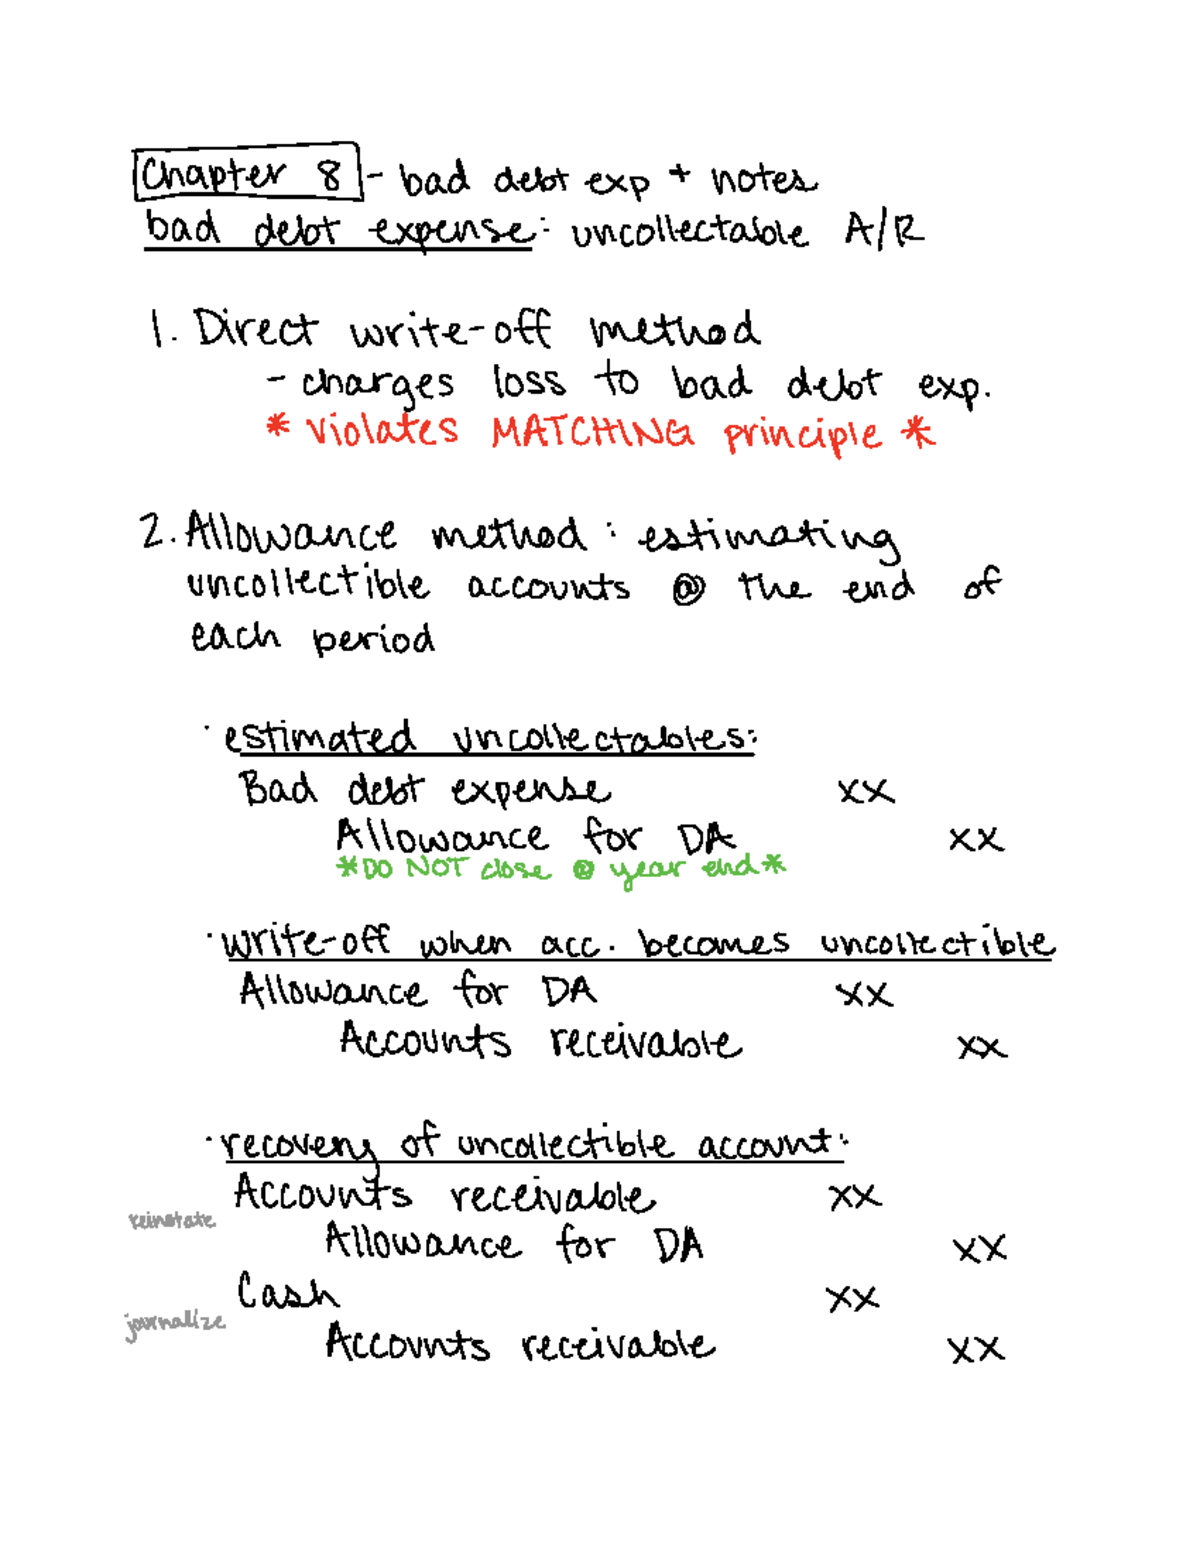 Chapter 8 - bad debt exp + notes
bad debt expense: uncollectable A/R
1. Direct write-off method
- charges loss to bad debt exp.
* violates MATCHING principle *
2. Allowance method : estimating
uncollectible accounts @ the end of
each period
· estimated uncollectables:
Bad debt expense xx
Allowance for DA xx
*DO NOT close @ year end*
· write-off when acc. becomes uncollectible
Allowance for DA xx
Accounts receivable xx
· recovery of uncollectible account:
Accounts receivable xx
reinstate
Allowance for DA xx
Cash xx
journalize
Accounts receivable xx